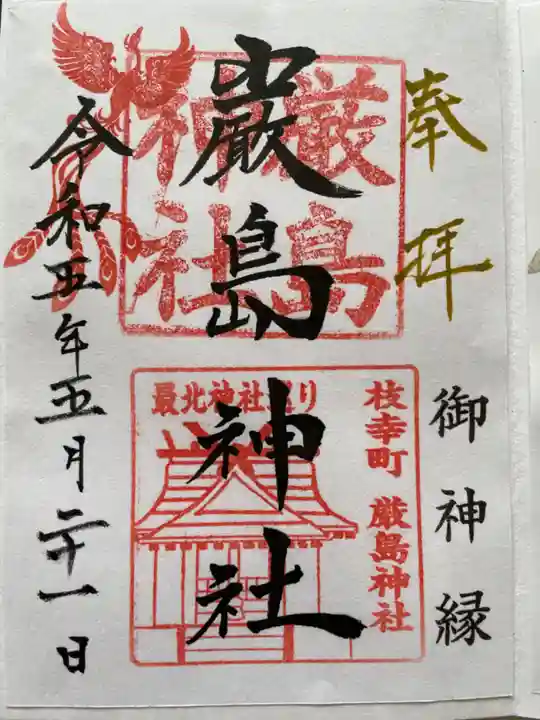 奉拝
御神縁
厳島神社
厳島神社
最北神社巡り
枝幸町 厳島神社
令和五年五月二十一日